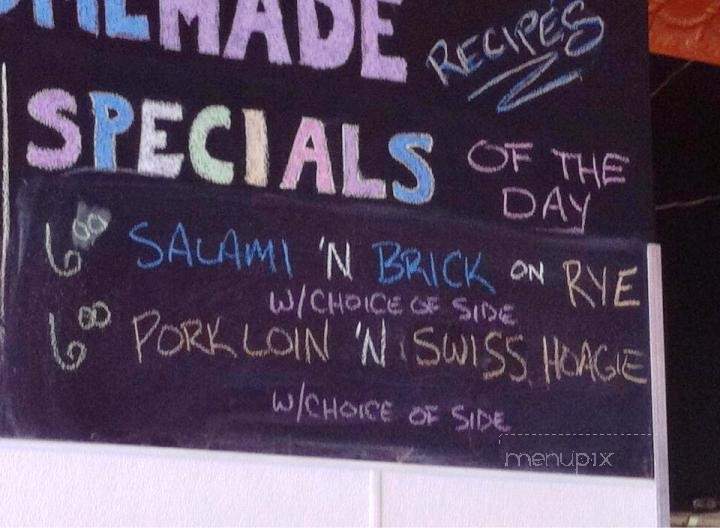 OMEMADE
RECIPES
SPECIALS
OF THE
DAY
6.00 SALAMI 'N BRICK ON RYE
W/CHOICE OF SIDE
6.00 PORK LOIN 'N SWISS HOAGIE
W/CHOICE OF SIDE
menupix